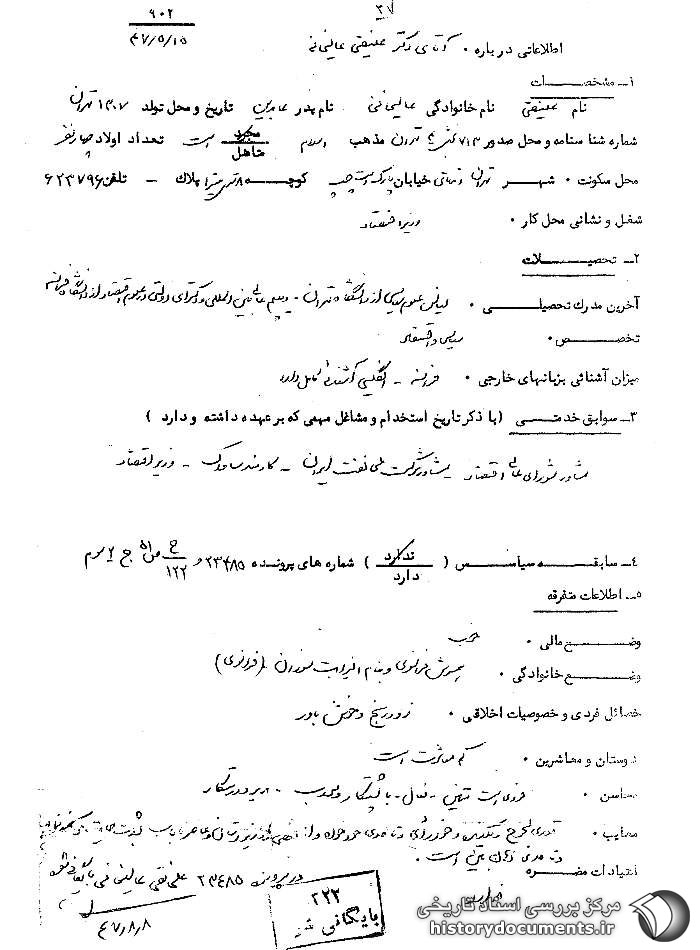 ۲۷
۹۰۲
۴۷/۵/۱۵
اطلاعاتی درباره ۰ آقای دکتر علینقی عالیخانی
۱ـ مشخصات
نام علینقی نام خانوادگی عالیخانی نام پدر عابدین تاریخ و محل تولد ۱۳۰۷ تهران
شماره شناسنامه و محل صدور ۷۱۳ تهران مذهب اسلام مجرد متاهل است تعداد اولاد چهار نفر
محل سکونت ۰ شهر تهران خیابان کوچه پلاك ـ تلفن ۶۲۳۷۹۶
شغل و نشانی محل کار ۰ وزیر اقتصاد
۲ـ تحصیلات
آخرین مدرك تحصیلی ۰ لیسانس علوم سیاسی از دانشگاه تهران ـ دیپلم عالی بین المللی و دکترای دولتی در علوم اقتصاد از دانشگاه فرانسه
تخصص ۰ سیاسی و اقتصادی
میزان آشنائی بزبانهای خارجی ۰ فرانسه ـ انگلیسی آشنائی کامل دارد
۳ـ سوابق خدمتی (با ذکر تاریخ استخدام و مشاغل مهمی که بر عهده داشته و دارد )
مشاور شورای عالی اقتصاد مشاور شرکت ملی نفت ایران ـ کارمند ساواك ـ وزیر اقتصاد
۴ـ سابقه سیاسی ( ندارد دارد ) شماره های پرونده ۲۳۴۸۵ و ح/۱۲۲ ص ۵۱ ج ۲ سوم
۵ـ اطلاعات متفرقه
وضع مالی ۰ خوب
وضع خانوادگی ۰ همسرش فرانسوی و بنام (فرانسوی)
خصائل فردی و خصوصیات اخلاقی ۰ زودرنج و خوش باور
دوستان و معاشرین ۰ کم معاشرت است
محاسن ۰ فردی است متین ـ فعال ـ با پشتکار و مودب ـ مدیر و درستکار
معایب ۰ قدری و خودرأی و تا حدی خودخواه و
و تا حدی است ۰
اعتیادات مضره ۰ ندارد
در پرونده ۲۳۴۸۵ علی نقی عالیخانی بایگانی شود
۴۷/۸/۸
۲۲۲
بایگانی شد
مرکز بررسی اسناد تاریخی
historydocuments.ir